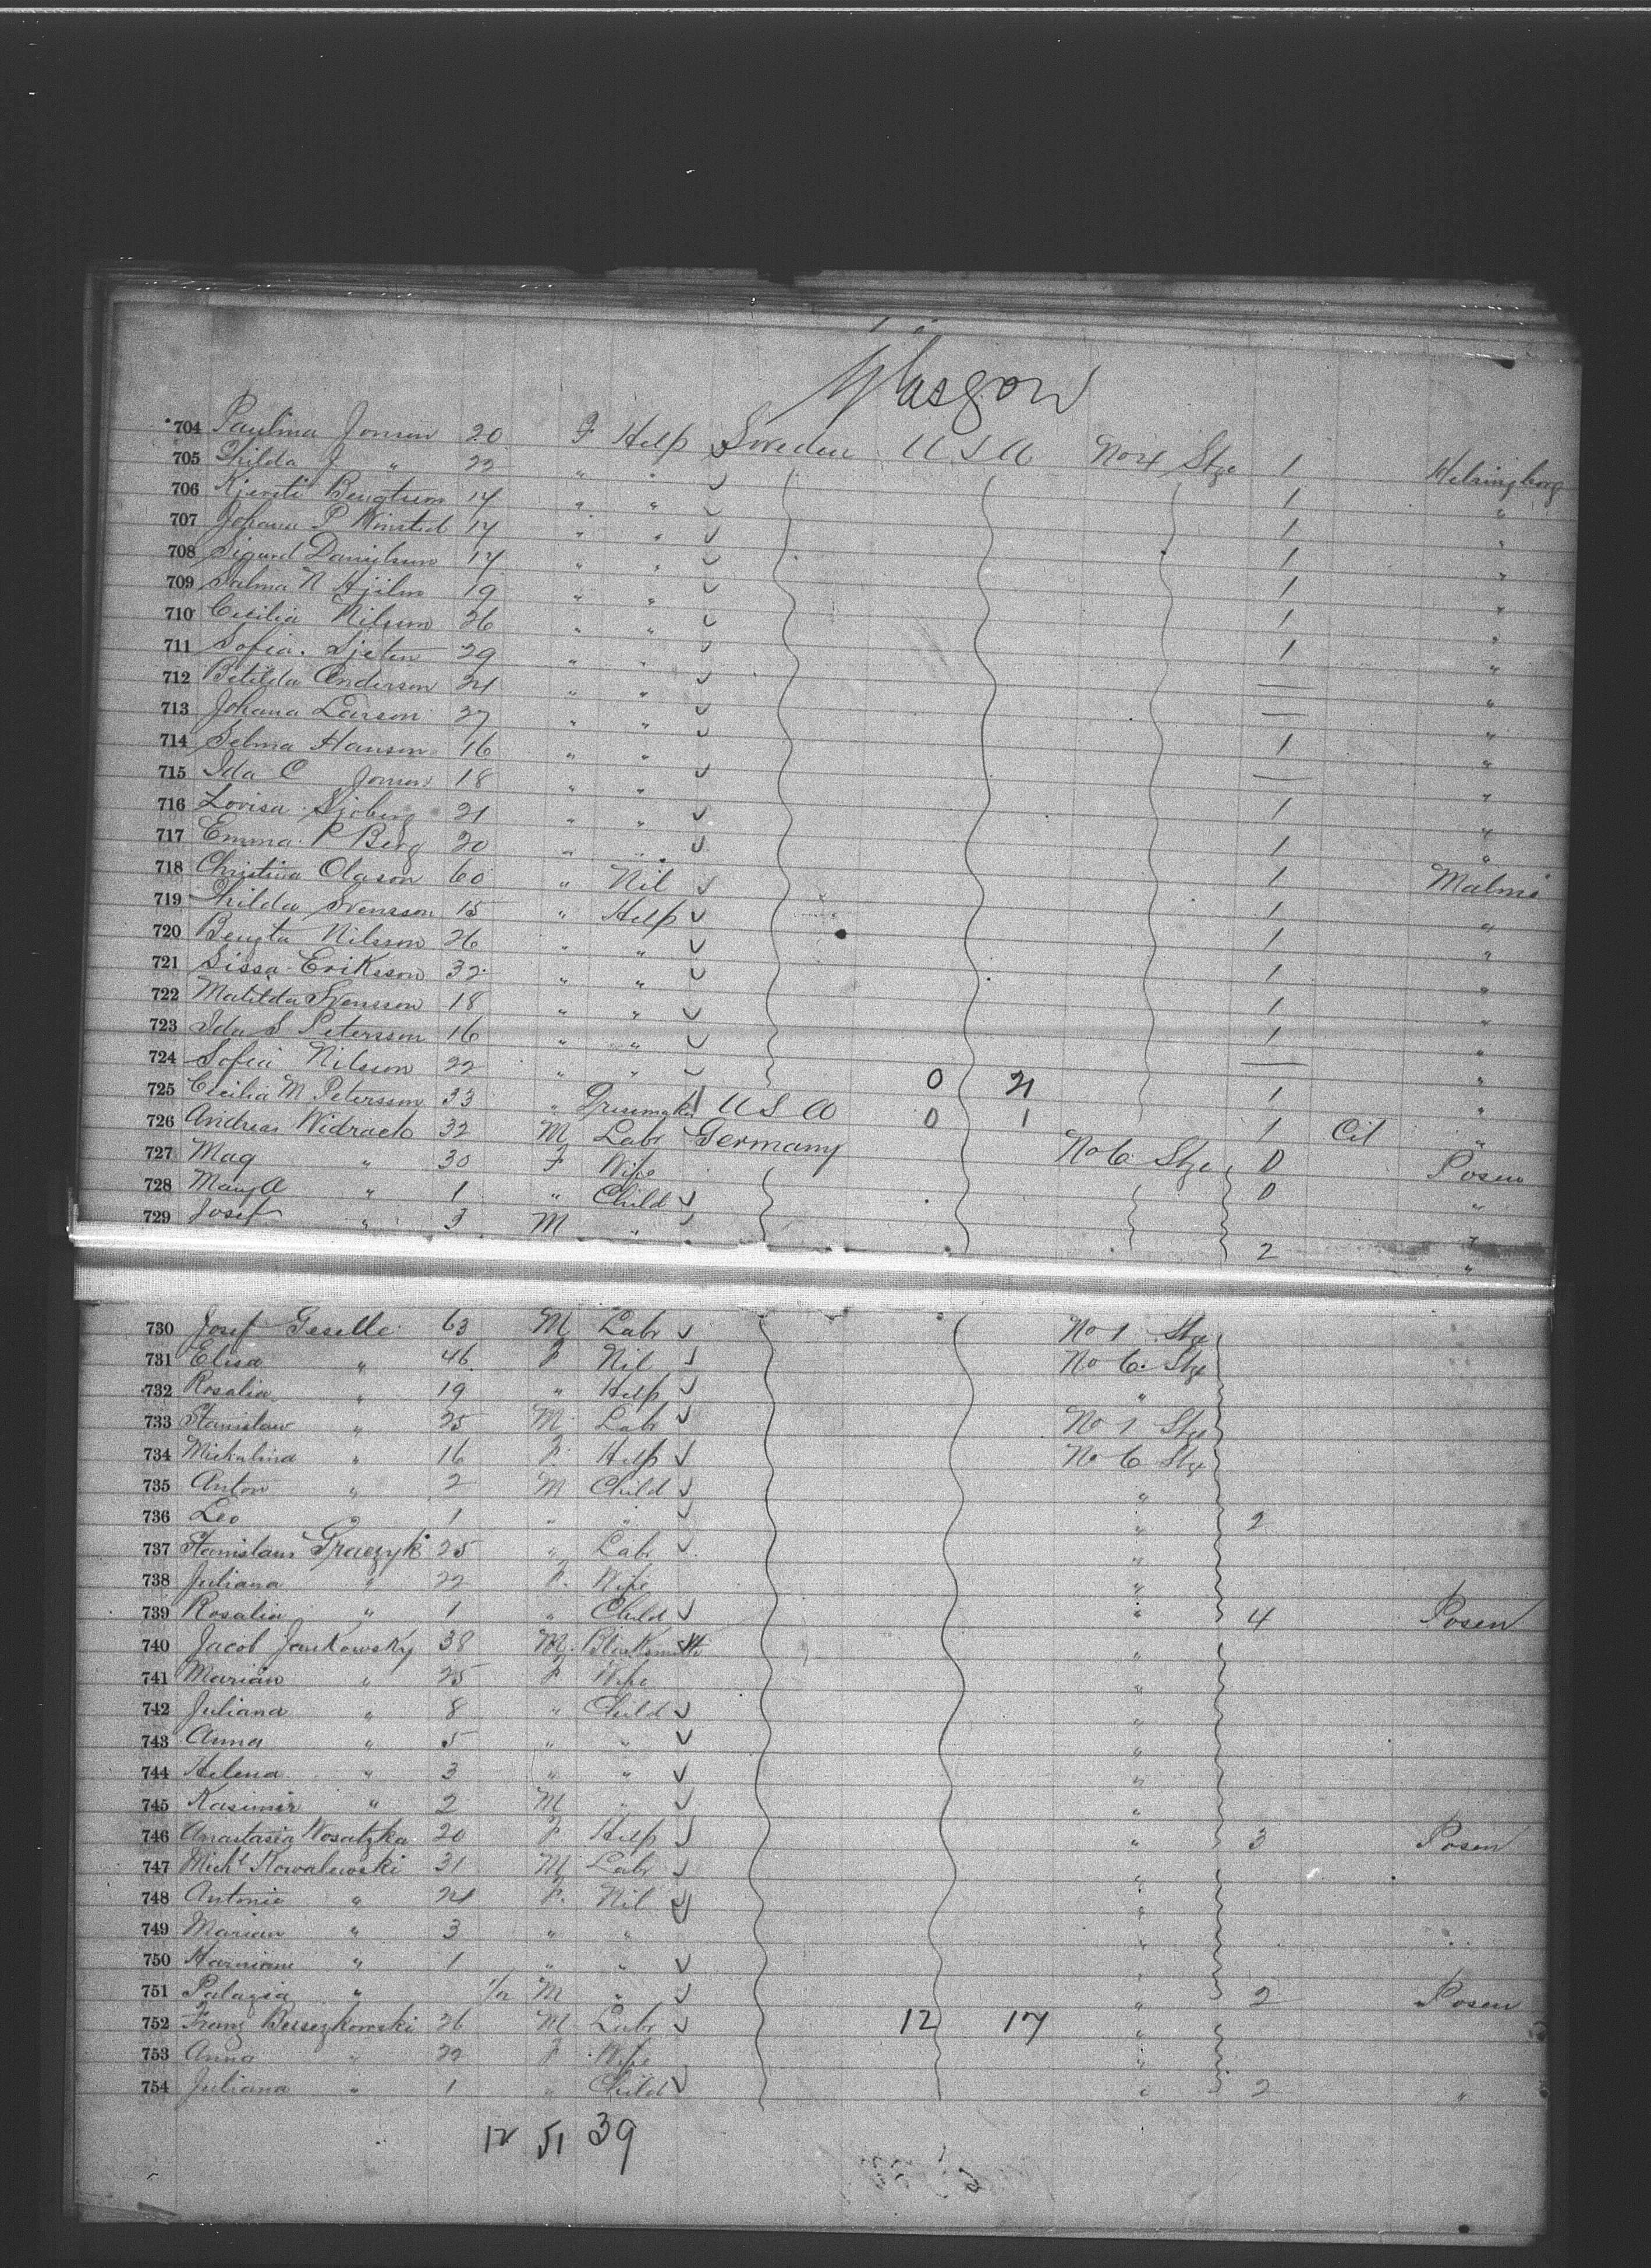 Glasgow
704 Paulina Jonson 20 F Help Sweden U S A No 4 Stge 1 Helsingborg
705 Thilda J " 22 " " 1 "
706 Kjersti Bengtson 17 " " 1 "
707 Johana P 17 " " 1 "
708 Sigurd Danielson 17 " " 1 "
709 Salma N 19 " " 1 "
710 Cecilia Nilson 26 " " 1 "
711 Sofia 29 " " "
712 Betilda Anderson 24 " " "
713 Johana Larson 27 " " 1 "
714 Selma Hanson 16 " " "
715 Ida C Jonson 18 " " 1 "
716 Lovisa Sjoberg 21 " " "
717 Emma P Berg 20 " " 1
718 Christina Olason 60 " Nil 1 Malmö
719 Thilda Svensson 15 " Help 1 "
720 Bengta Nilsson 26 " " 1 "
721 Sissa Eriksson 32 " " 1 "
722 Matilda Svensson 18 " " 1 "
723 Ida S Petersson 16 " " 1 "
724 Sofia Nilsson 22 " " 0 21 "
725 Cecilia M Petersson 33 " Dressmaker U S A 0 1 1 "
726 Andreas 32 M Labr Germany No 6 Stge 1 Cit "
727 Mag " 30 F Wife 0 Posen
728 Mary A " 1 " Child 0 "
729 Josef " 3 M " 2 "
730 Josef Geselle 63 M Labr No 1 Stge
731 Elisa " 46 F Nil No 6 Stge
732 Rosalia " 19 " Help "
733 Stanislaw " 25 M Labr No 1 Stge
734 Mickalina " 16 F Help No 6 Stge
735 Anton " 2 M Child "
736 Leo " 1 " " " 2
737 Stanislaus Graczyk 25 " Labr "
738 Juliana " 22 F Wife "
739 Rosalia " 1 " Child " 4 Posen
740 Jacob Jankowsky 38 M Blacksmith "
741 Marian " 25 F Wife "
742 Juliana " 8 " Child "
743 Anna " 5 " " "
744 Helena " 3 " " "
745 Kasimir " 2 M " "
746 Anastasia Wosatzka 20 F Help " 3 Posen
747 Michl Kowalewski 31 M Labr "
748 Antonie " 24 F Nil "
749 Marian " 3 " " "
750 " 1 " " "
751 Palagia " M " " 2 Posen
752 Franz 26 M Labr 12 17 "
753 Anna " 22 F Wife "
754 Juliana " 1 " Child " 2 "
12 51 39